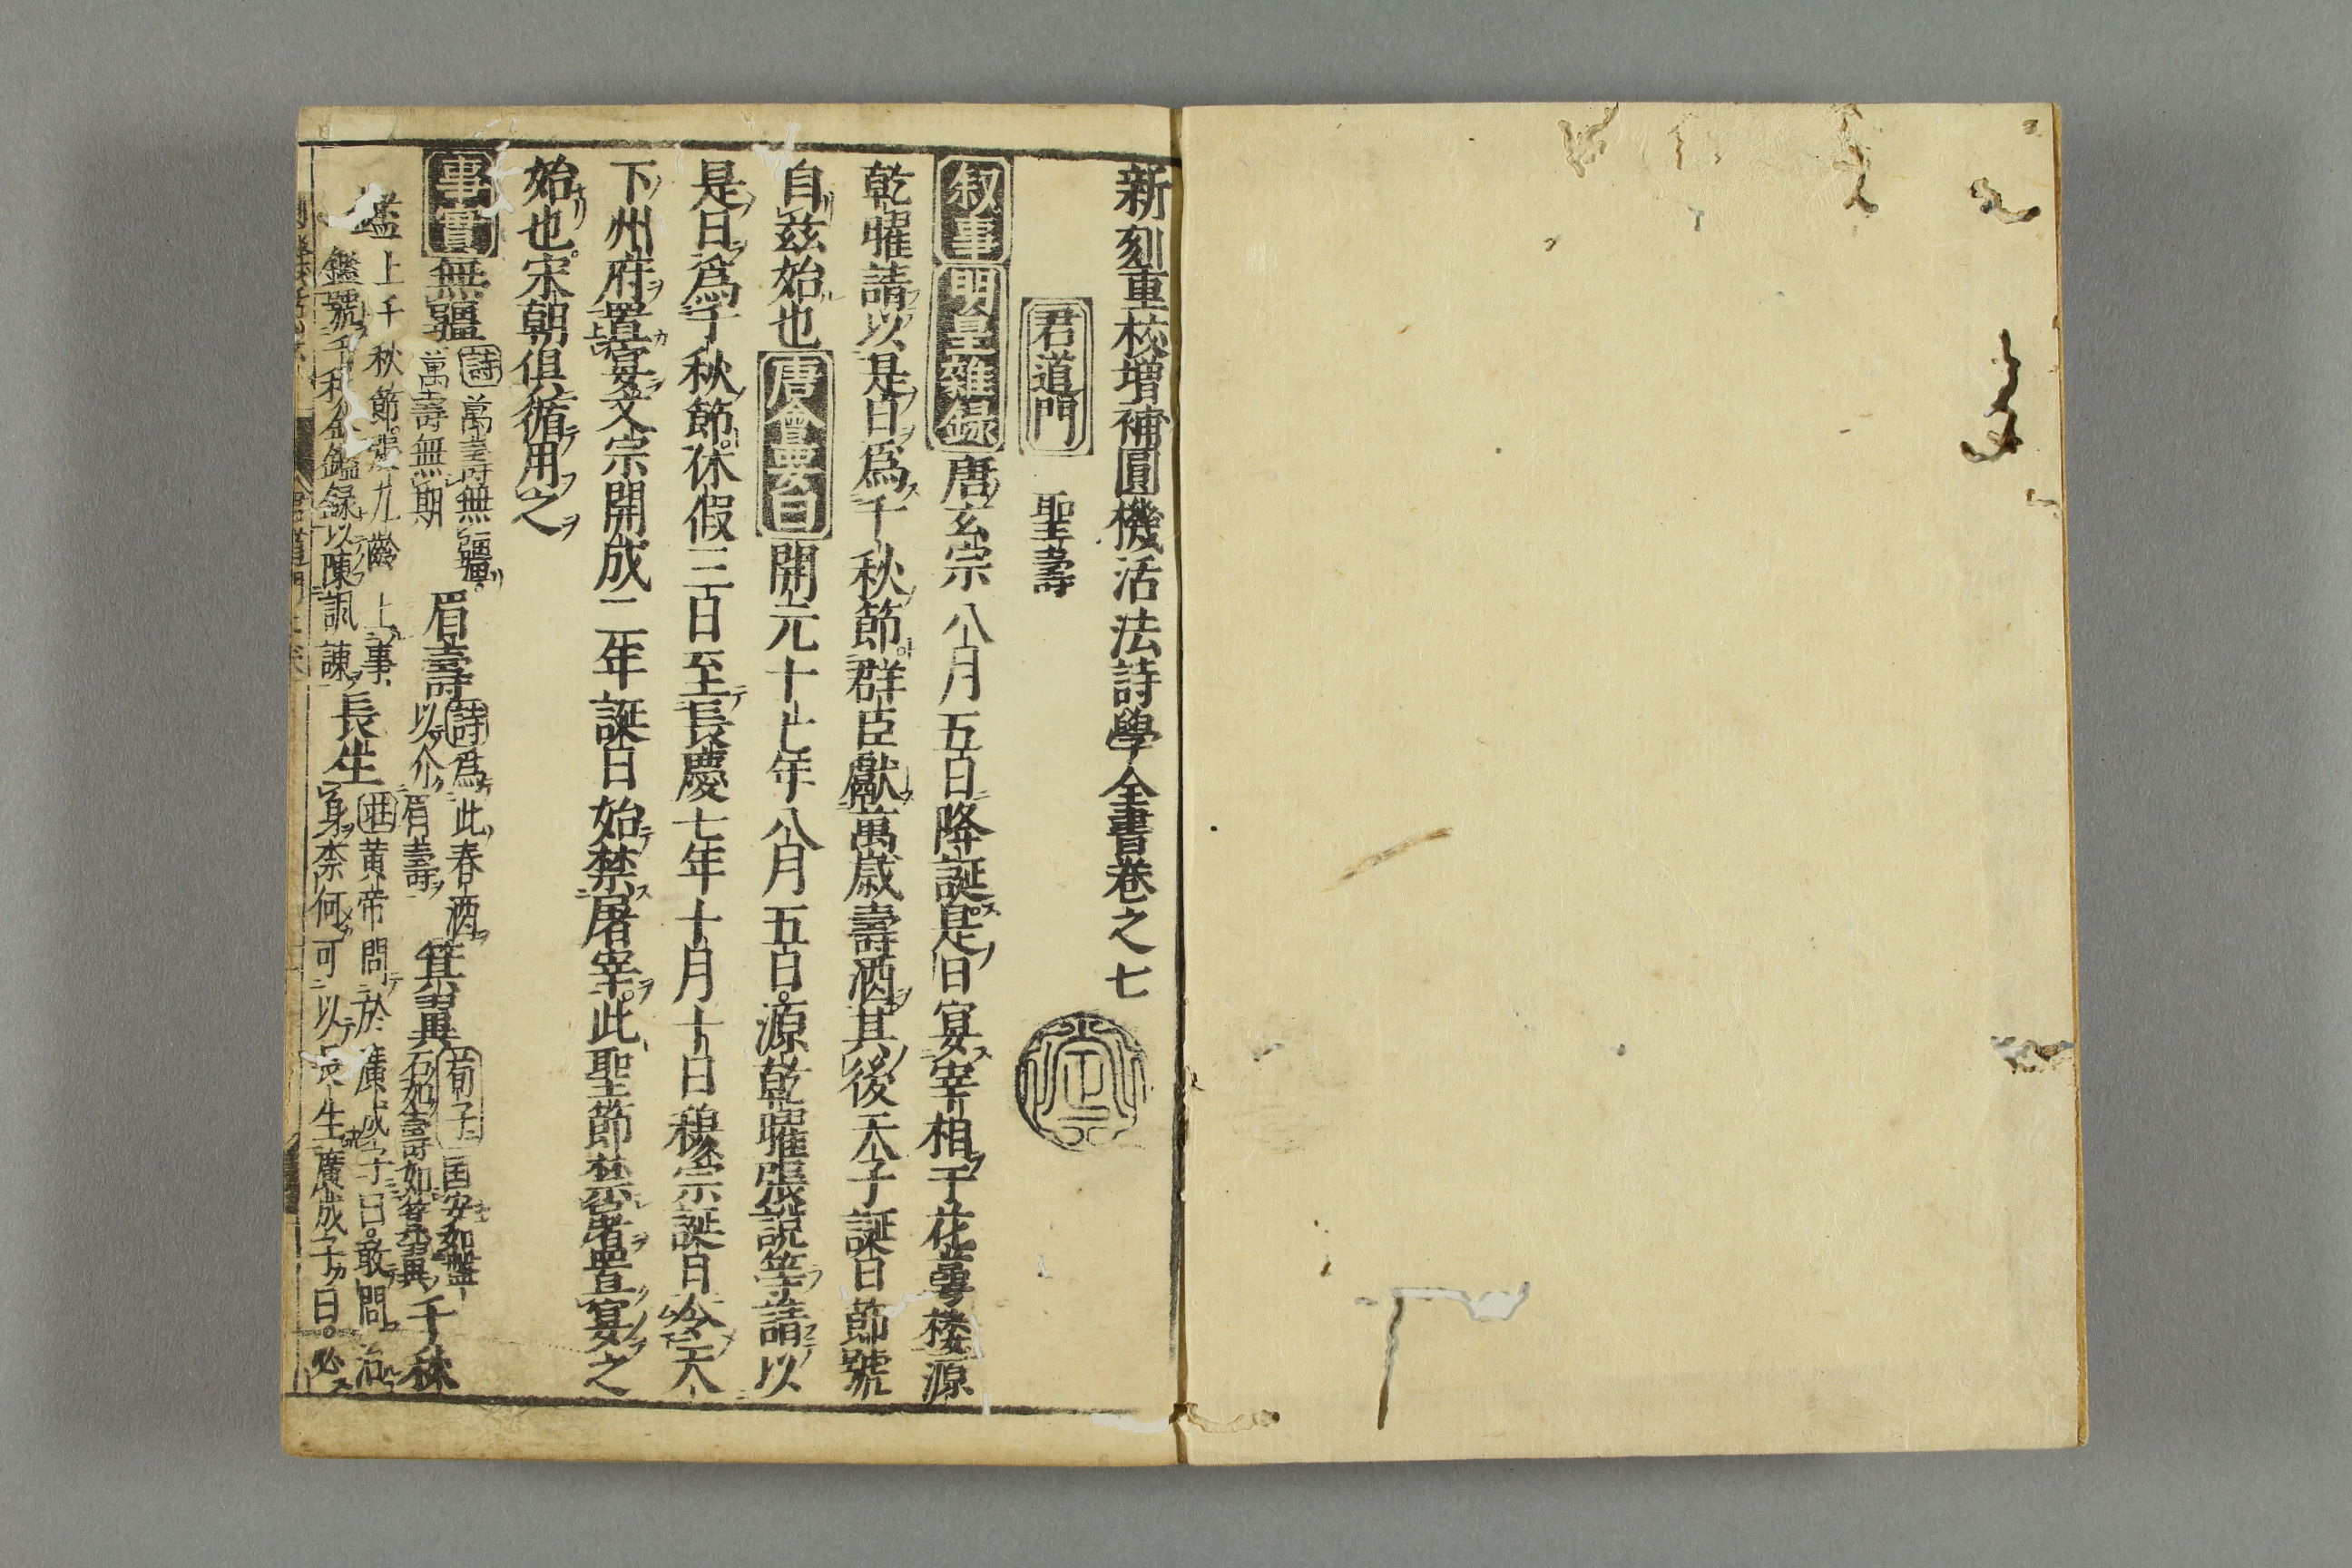 新刻重校增補圓機活法詩學全書卷之七
君道門 聖壽
叙事 明皇雜錄 唐玄宗八月五日降誕是日宴宰相于花萼楼源
乾曜請以是日爲千秋節群臣獻萬歲壽酒其後天子誕日節號
自兹始也 唐會要曰 開元十七年八月五日源乾曜張説等請以
是日爲千秋節休假三日至長慶七年十月十日穆宗誕日令天
下州府置宴文宗開成二年誕日始禁屠宰此聖節禁屠置宴之
始也宋朝俱循用之
事實 無疆 詩萬壽無疆
萬壽無期 眉壽 詩爲此春酒
以介眉壽 箕翼 荀子国安如盤
石如壽如箕翼 千秋
鑑 上千秋節張九齡上事
鑑號千秋金鑑録以陳諷諫 長生 荘黄帝問於廣成子曰敢問治
身柰何可以長生廣成子曰必